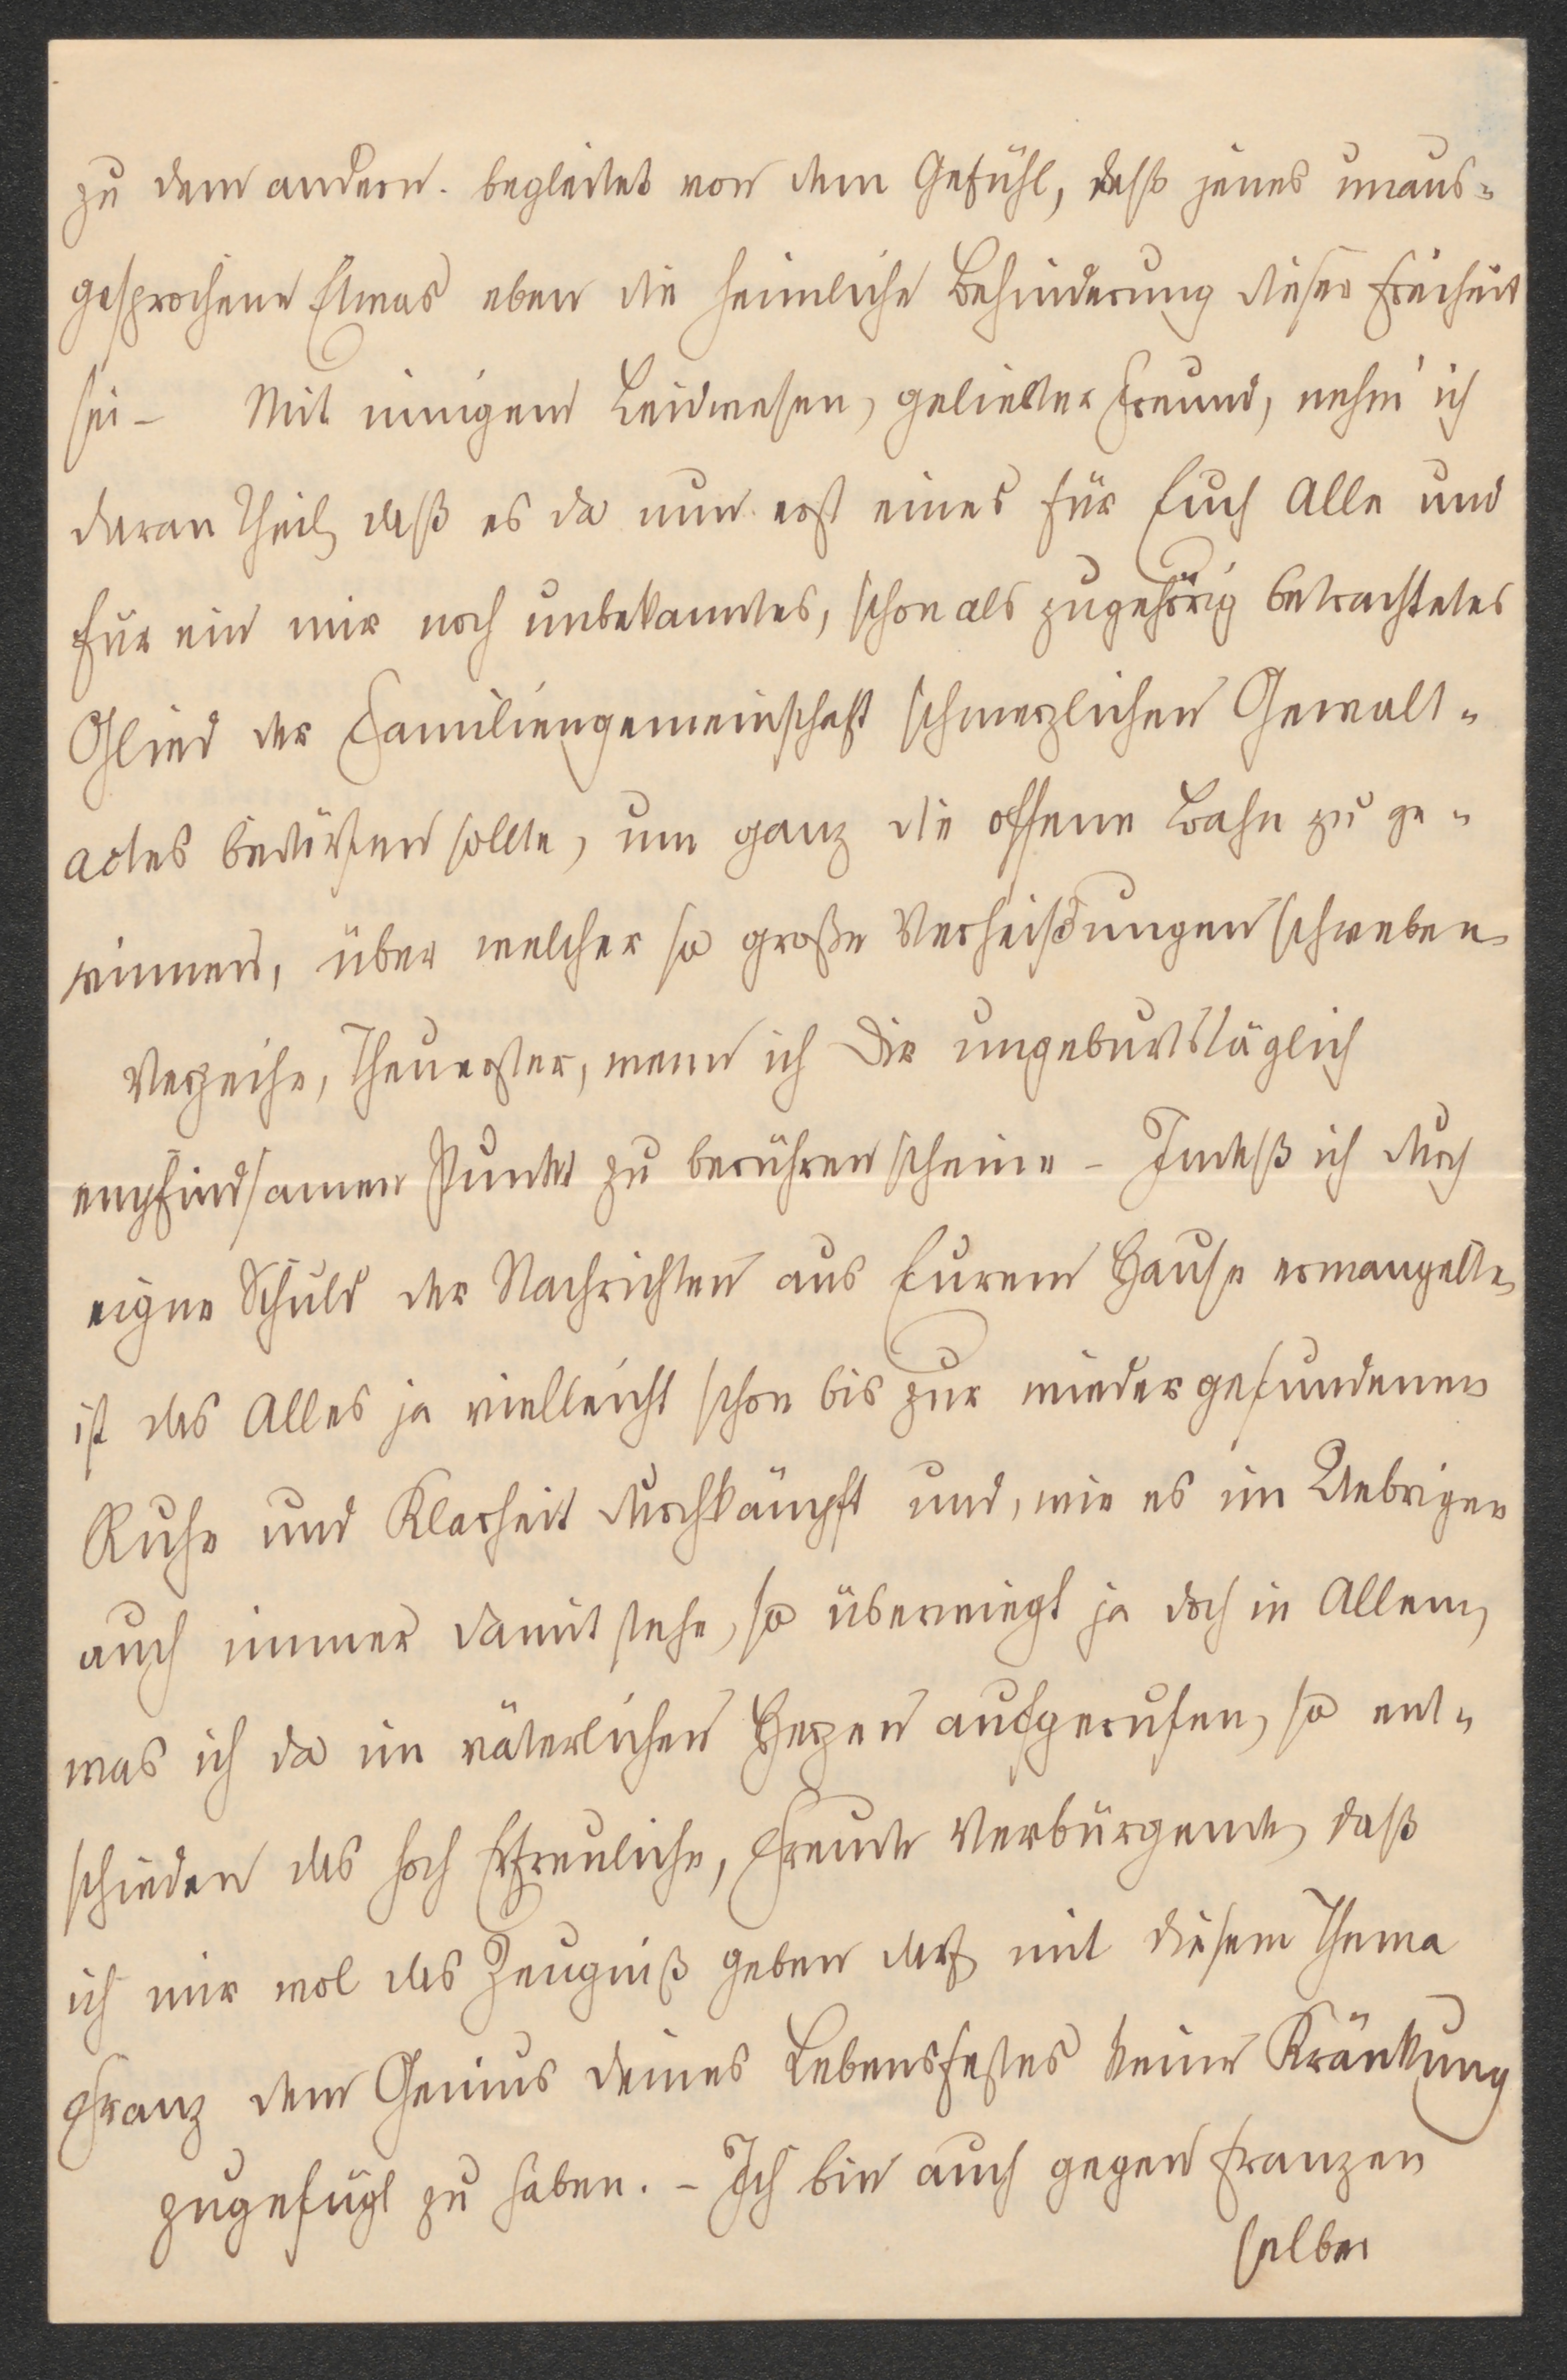 zu dem andern. begleitet von dem Gefühl, daß jenes unaus-
gesprochene Etwas eben die heimliche Behinderung dieser Freiheit
sei – Mit innigem Leidwesen, geliebter Freund, nehm' ich
daran Theil, daß es da nun erst eines für Euch Alle und
für ein mir noch unbekanntes, schon als zugehörig betrachtetes
Glied der Familiengemeinschaft schmerzlichen Gewalt-
actes bedürfen sollte, um ganz die offene Bahn zu ge-
winnen, über welcher so große Verheißungen schweben
Verzeihe, Theuerster, wenn ich Dir ungeburtstäglich
empfindsamen Punkt zu berühren scheine – Indeß ich durch
eigne Schuld der Nachrichten aus Eurem Hause ermangelte,
ist das Alles ja vielleicht schon bis zur wiedergefundenen
Ruhe und Klarheit durchkämpft und, wie es im Uebrigen
auch immer damit stehe, so überwiegt ja doch in Allem,
was ich da im väterlichen Herzen aufgerufen, so ent-
schieden das hoch Erfreuliche, Freude Verbürgende, daß
ich mir wol das Zeugniß geben darf mit diesem Thema
Franz dem Genius deines Lebensfestes keine Kränkung
zugefügt zu haben. – Ich bin auch gegen Franzen
selber